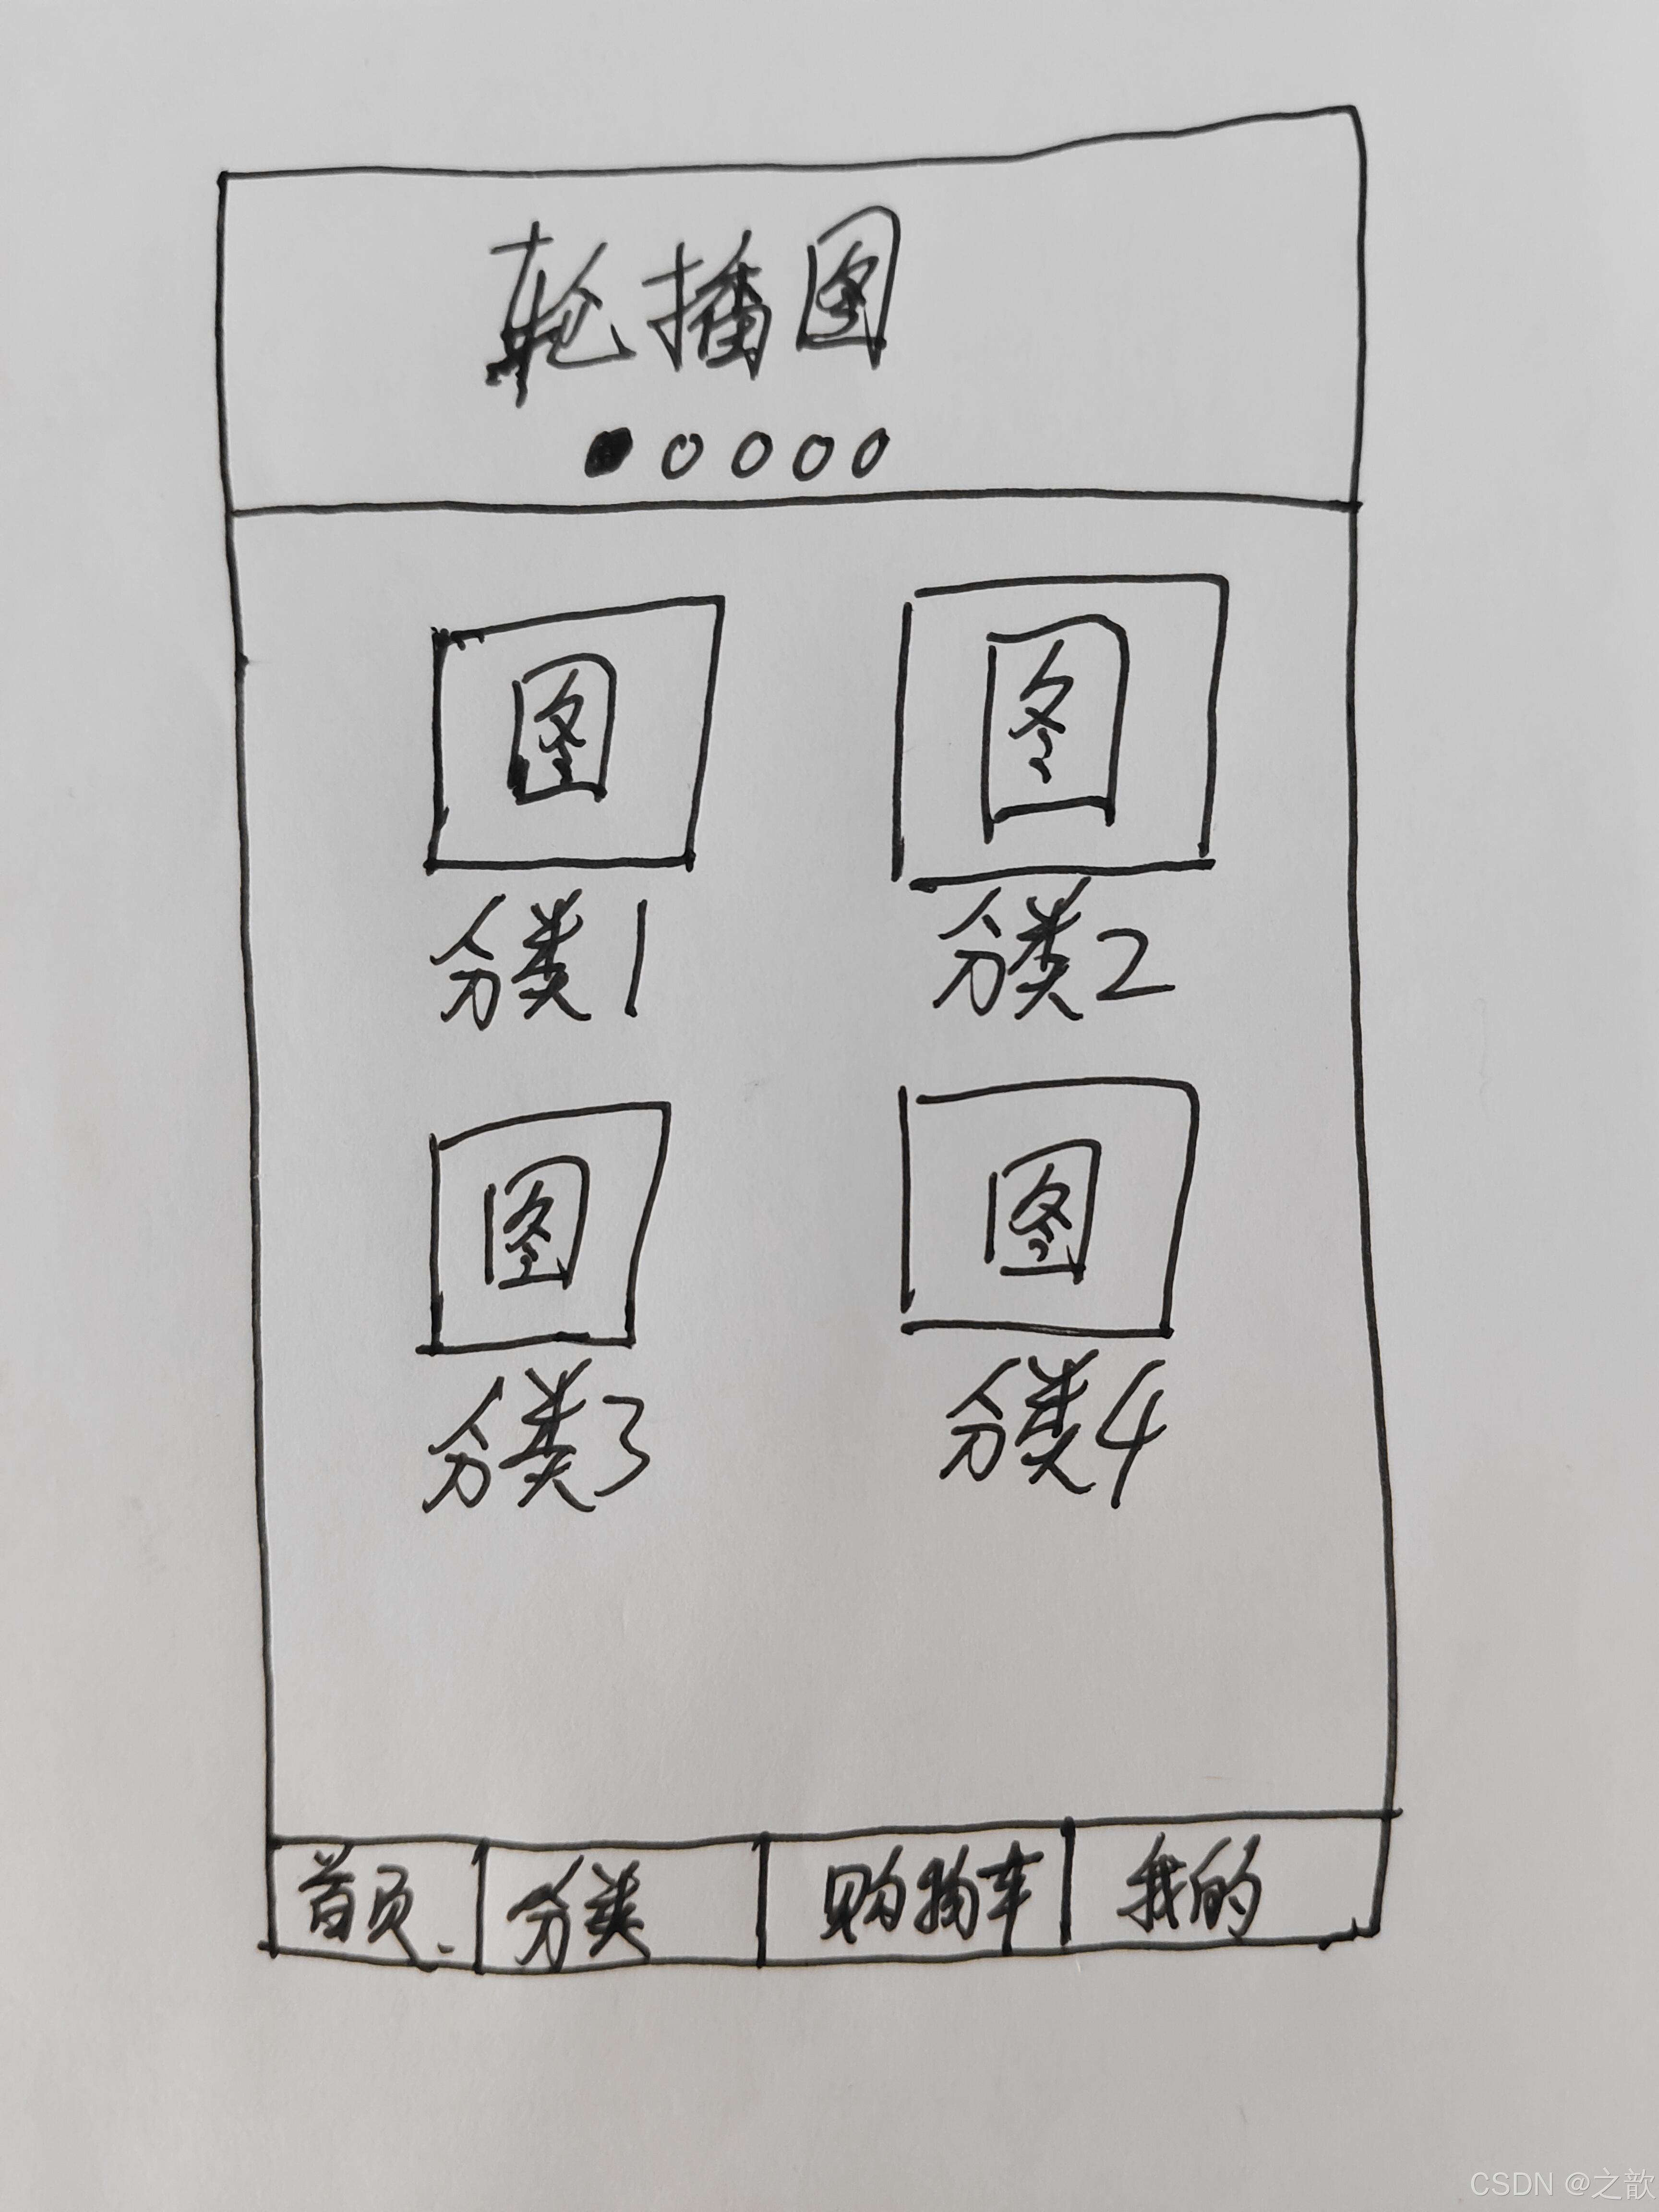 轮播图
图 图
分类1 分类2
图 图
分类3 分类4
首页 分类 购物车 我的
CSDN @之歆